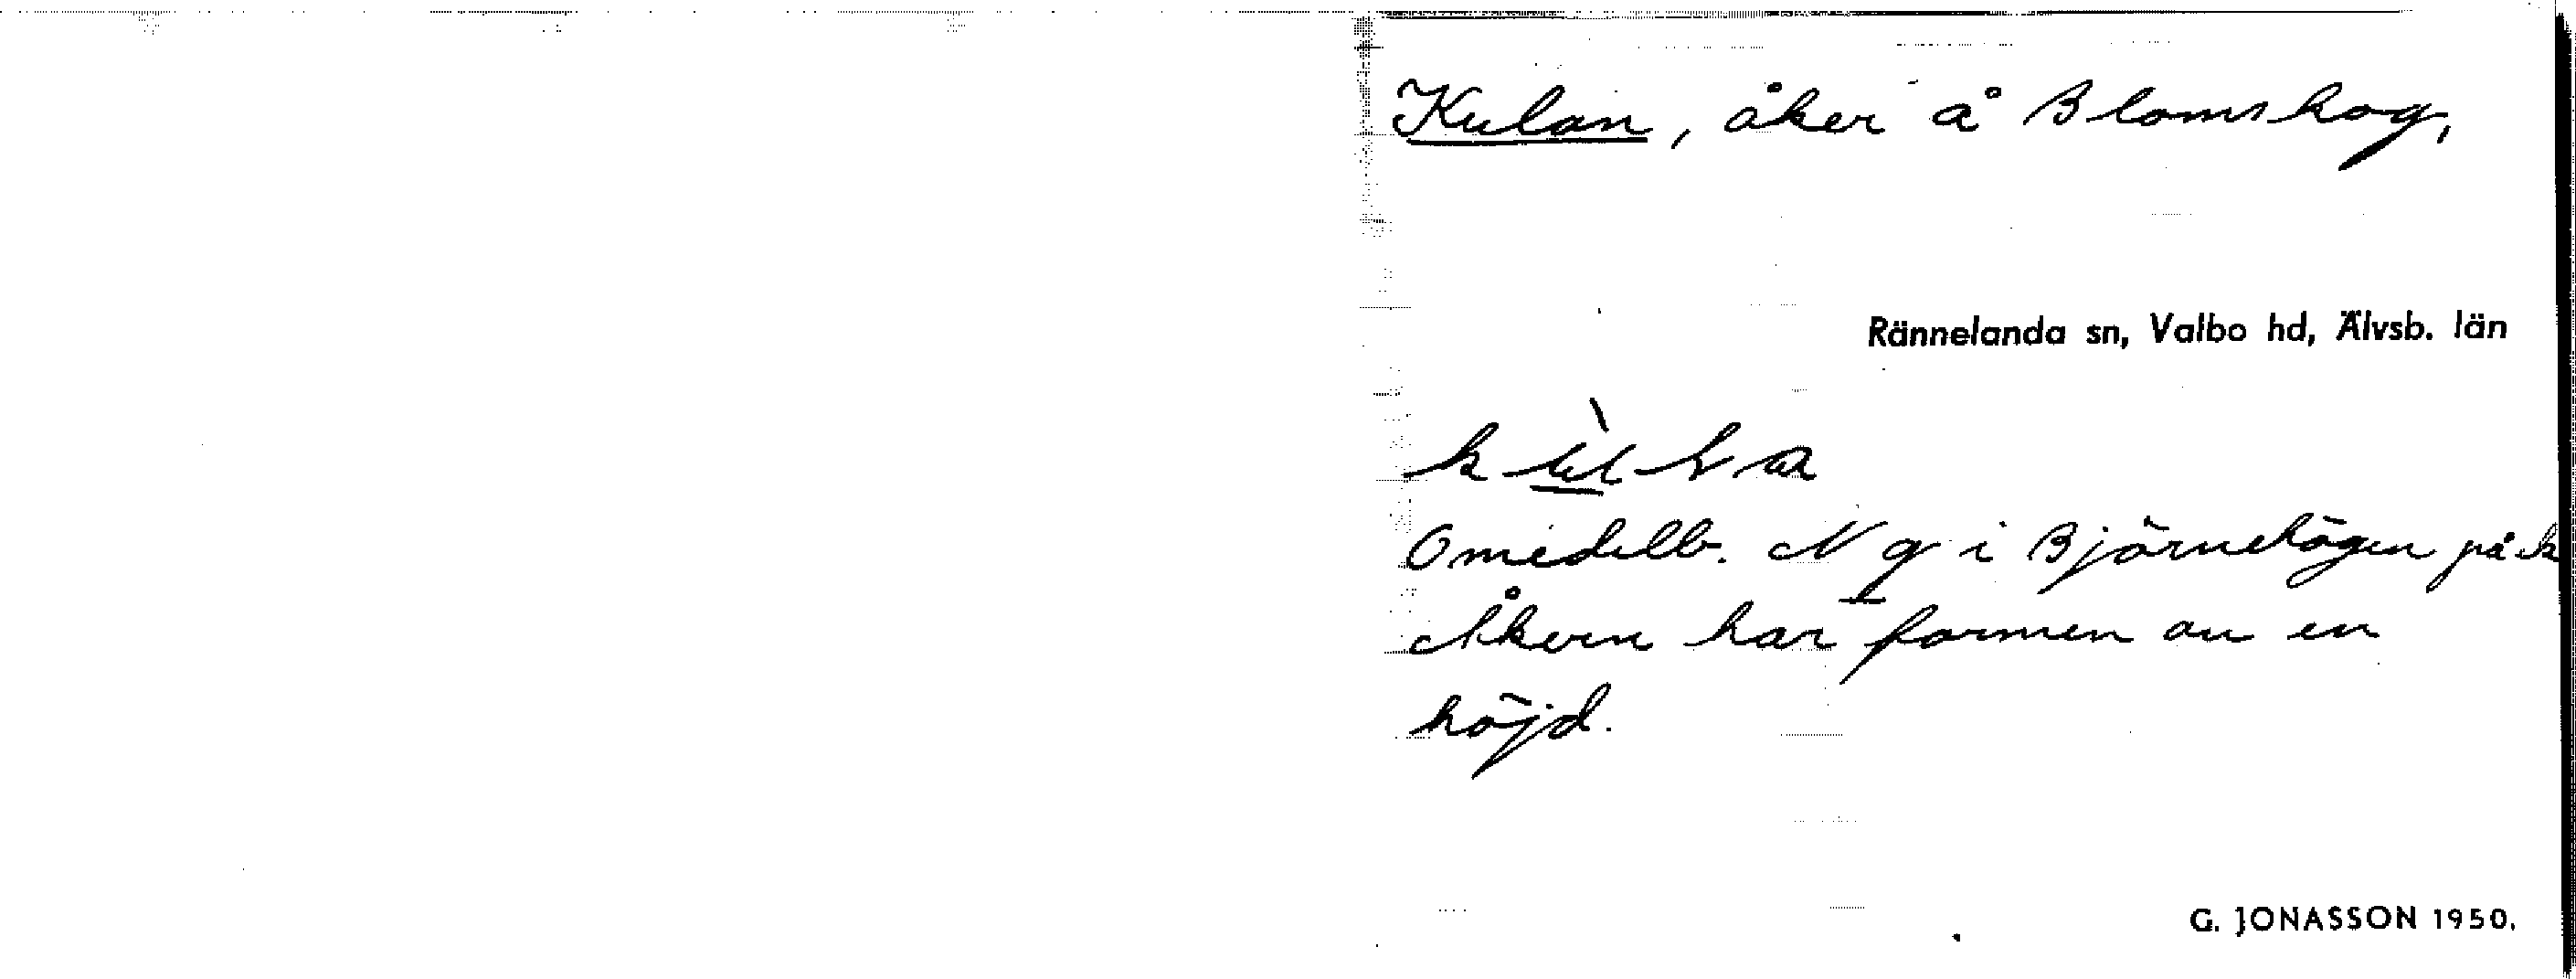 Kulan, åker å Blomskog,
Rännelanda sn, Valbo hd, Älvsb. län
Omedelb. N g i Björnehögen på k
Åkern har formen av en
höjd.
G. JONASSON 1950.